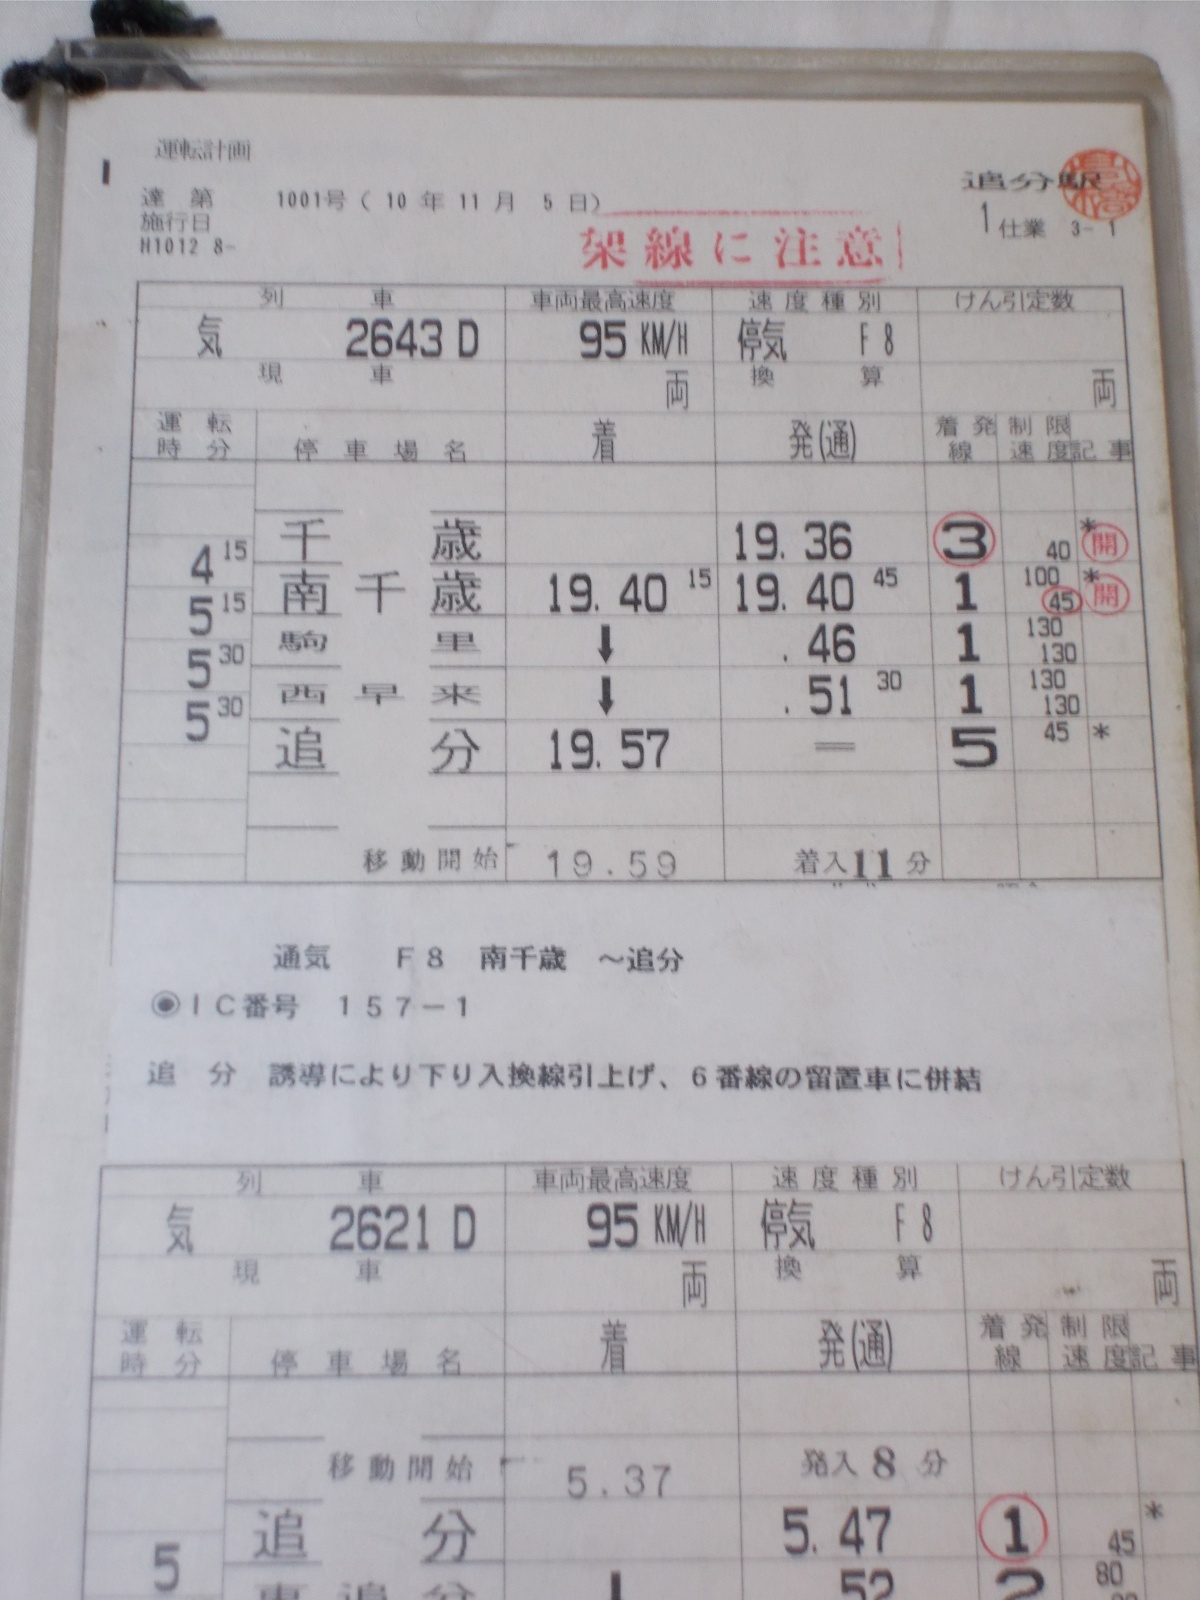 運転計画
追分駅
達 第 1001号( 10 年 11 月 5 日)
1 仕業 3-1
施行日
H1012 8-
架線に注意
列 車 車両最高速度 速度種別 けん引定数
気 2643D 95 KM/H 停気 F8
現 車 両 換 算 両
運転時分 停車場名 着 発(通) 着発線 制限速度 記事
千歳 19.36 3 40 * 開
4 15
南千歳 19.40 15 19.40 45 1 100 45 * 開
5 15
駒里 ↓ .46 1 130 130
5 30
西早来 ↓ .51 30 1 130 130
5 30
追分 19.57 = 5 45 *
移動開始 19.59 着入11分
通気 F8 南千歳 ~追分
◉IC番号 157-1
追 分 誘導により下り入換線引上げ、6番線の留置車に併結
列 車 車両最高速度 速度種別 けん引定数
気 2621D 95 KM/H 停気 F8
現 車 両 換 算 両
運転時分 停車場名 着 発(通) 着発線 制限速度 記事
移動開始 5.37 発入8分
追分 5.47 1 45 *
5
東追分 ↓ .52 2 80